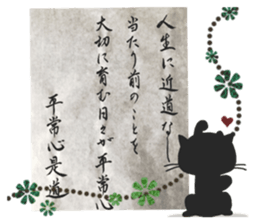 人生に近道なし
当たり前のことを
大切に育む日々が平常心
平常心是道